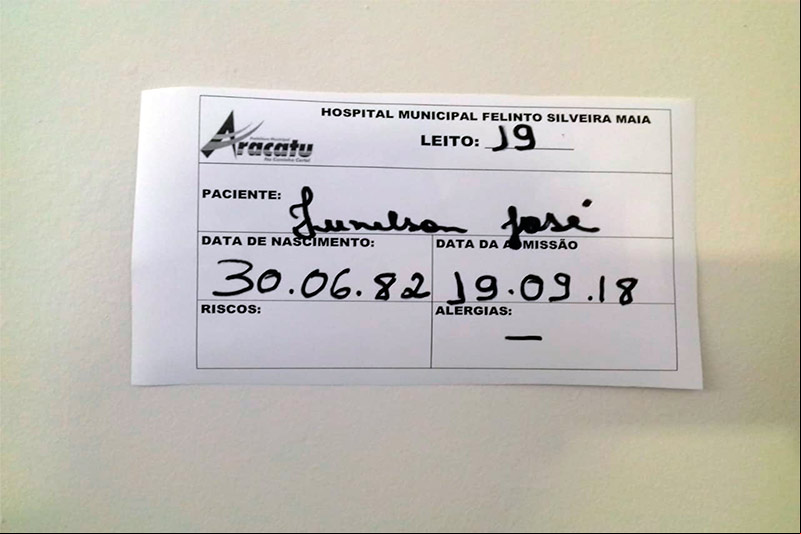 HOSPITAL MUNICIPAL FELINTO SILVEIRA MAIA
Prefeitura Municipal
Aracatu
No Caminho Certo!
LEITO: 19
PACIENTE: Junelson José
DATA DE NASCIMENTO: DATA DA ADMISSÃO
30.06.82 19.09.18
RISCOS: ALERGIAS:
—